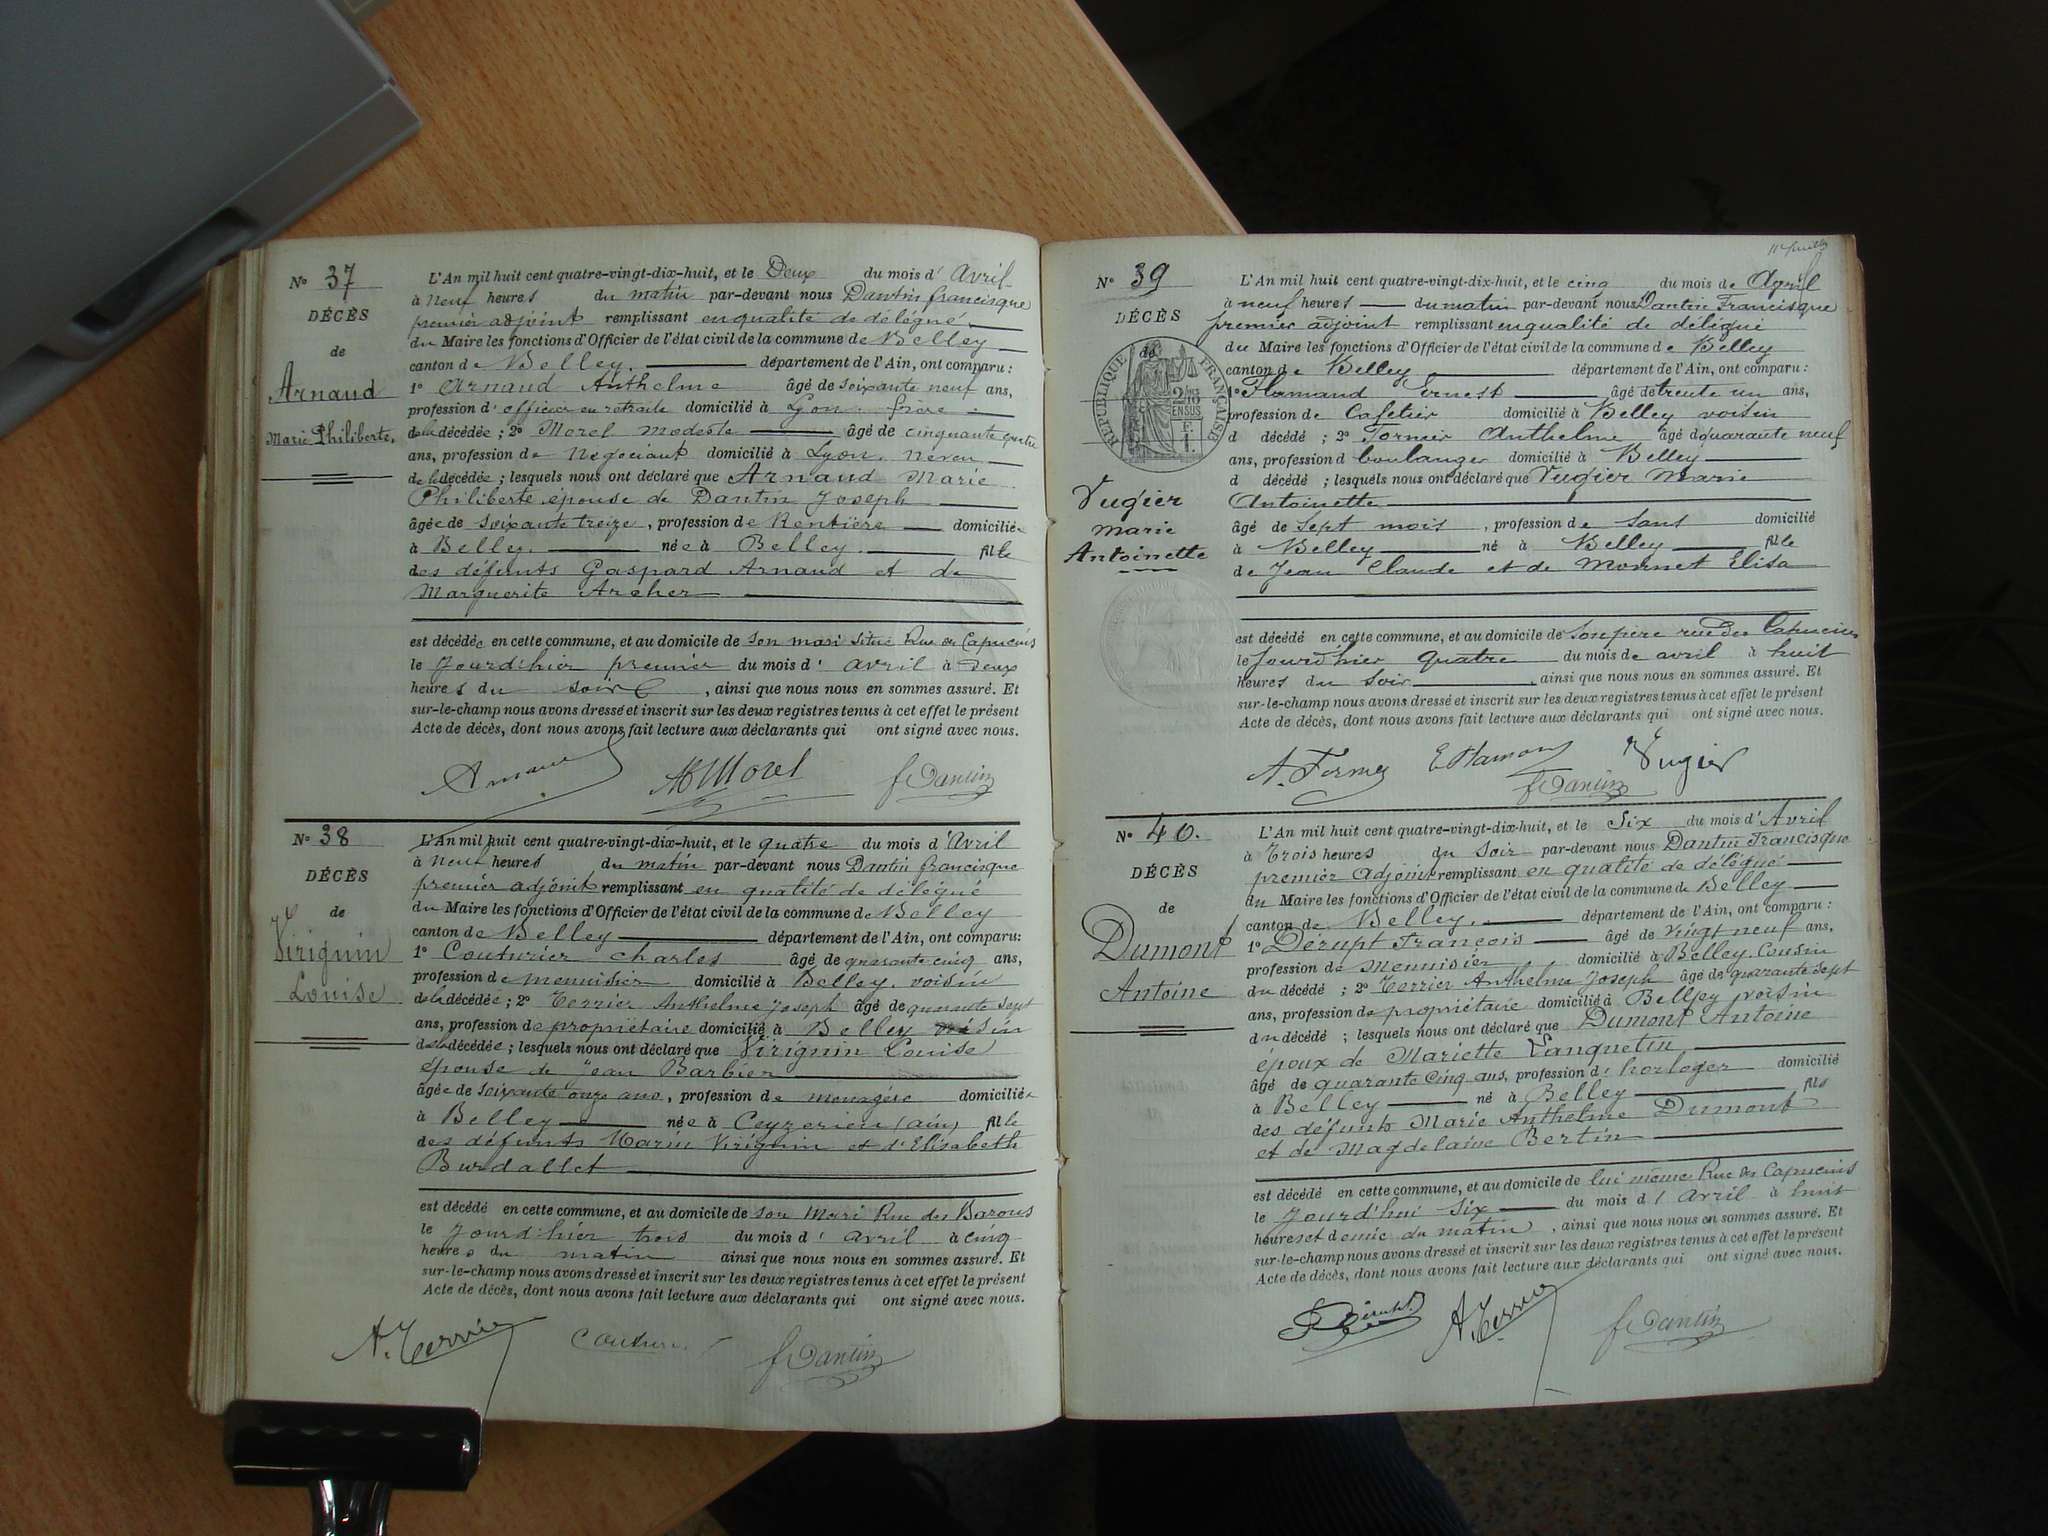 No 37
DÉCÈS
de
Arnaud
Marie Philiberte,
L'An mil huit cent quatre-vingt-dix-huit, et le Deux du mois d' Avril
à Neuf heures du matin par-devant nous Dantin francisque
premier adjoint remplissant en qualité de délégué
du Maire les fonctions d'Officier de l'état civil de la commune de Belley
canton de Belley. département de l'Ain, ont comparu :
1o Arnaud Anthelme âgé de soixante neuf ans,
profession d' officier en retraite domicilié à Lyon. frère
de la décédée ; 2o Morel modeste âgé de cinquante quatre
ans, profession de Négociant domicilié à Lyon. Neveu
de la décédée ; lesquels nous ont déclaré que Arnaud Marie
Philiberte épouse de Dantin Joseph
âgée de soixante treize, profession de Rentière domiciliée
à Belley. née à Belley. fille
des défunts Gaspard Arnaud et de
Marguerite Archer
est décédée en cette commune, et au domicile de son mari situé Rue des Capucins
le jourd'hier premier du mois d' avril à Deux
heures du soir, ainsi que nous nous en sommes assuré. Et
sur-le-champ nous avons dressé et inscrit sur les deux registres tenus à cet effet le présent
Acte de décès, dont nous avons fait lecture aux déclarants qui ont signé avec nous.
Arnaud Morel f Dantin
No 38
DÉCÈS
de
Virignin
Louise
L'An mil huit cent quatre-vingt-dix-huit, et le quatre du mois d' Avril
à Neuf heures du matin par-devant nous Dantin francisque
premier adjoint remplissant en qualité de délégué
du Maire les fonctions d'Officier de l'état civil de la commune de Belley
canton de Belley département de l'Ain, ont comparu :
1o Couturier charles âgé de quarante cinq ans,
profession de menuisier domicilié à Belley. voisin
de la décédée ; 2o Terrier Anthelme Joseph âgé de quarante sept
ans, profession de propriétaire domicilié à Belley voisin
de la décédée ; lesquels nous ont déclaré que Virignin Louise
épouse de Jean Barbier
âgée de soixante onze ans, profession de menagère domiciliée
à Belley née à Ceyzerieu (ain) fille
des défunts Marin Virignin et d'Elisabeth
Burdallet
est décédé en cette commune, et au domicile de son Mari Rue des Barons
le jourd'hier trois du mois d' avril à cinq
heures du matin ainsi que nous nous en sommes assuré. Et
sur-le-champ nous avons dressé et inscrit sur les deux registres tenus à cet effet le présent
Acte de décès, dont nous avons fait lecture aux déclarants qui ont signé avec nous.
A. Terrier f Dantin
No 39
DÉCÈS
de
RÉPUBLIQUE FRANÇAISE
Vugier
marie
Antoinette
L'An mil huit cent quatre-vingt-dix-huit, et le cinq du mois de Avril
à neuf heures du matin par-devant nous Dantin Francisque
premier adjoint remplissant en qualité de délégué
du Maire les fonctions d'Officier de l'état civil de la commune de Belley
canton de Belley département de l'Ain, ont comparu :
1o Flamand Ernest âgé de trente un ans,
profession de Cafetier domicilié à Belley voisin
d décédé ; 2o Fornier Anthelme âgé de quarante neuf
ans, profession d boulanger domicilié à Belley
d décédé ; lesquels nous ont déclaré que Vugier Marie
Antoinette
âgé de Sept mois, profession de sans domicilié
à Belley né à Belley fille
de Jean Claude et de Monnet Elisa
est décédé en cette commune, et au domicile de son père rue des Capucins
le jourd'hier quatre du mois de avril à huit
heures du soir, ainsi que nous nous en sommes assuré. Et
sur-le-champ nous avons dressé et inscrit sur les deux registres tenus à cet effet le présent
Acte de décès, dont nous avons fait lecture aux déclarants qui ont signé avec nous.
f Dantin Vugier
No 40.
DÉCÈS
de
Dumont
Antoine
L'An mil huit cent quatre-vingt-dix-huit, et le Six du mois d' Avril
à Trois heures du soir par-devant nous Dantin Francisque
premier Adjoint remplissant en qualité de délégué
du Maire les fonctions d'Officier de l'état civil de la commune de Belley
canton de Belley. département de l'Ain, ont comparu :
1o Dérupt François âgé de vingt neuf ans,
profession de Menuisier domicilié à Belley Cousin
du décédé ; 2o Terrier Anthelme Joseph âgé de quarante sept
ans, profession de propriétaire domicilié à Belley voisin
du décédé ; lesquels nous ont déclaré que Dumont Antoine
époux de Mariette Vanquetin
âgé de quarante cinq ans, profession d' horloger domicilié
à Belley né à Belley fils
des défunts Marie Anthelme Dumont
et de Magdelaine Bertin
est décédé en cette commune, et au domicile de lui même Rue des Capucins
le jourd'hui six du mois d' Avril à huit
heures et demie du matin, ainsi que nous nous en sommes assuré. Et
sur-le-champ nous avons dressé et inscrit sur les deux registres tenus à cet effet le présent
Acte de décès, dont nous avons fait lecture aux déclarants qui ont signé avec nous.
Dérupt A. Terrier f Dantin